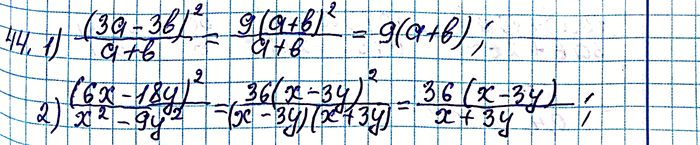 44. 1) (3a - 3b)² / (a + b) = 9(a + b)² / (a + b) = 9(a + b);
2) (6x - 18y)² / (x² - 9y²) = 36(x - 3y)² / ((x - 3y)(x + 3y)) = 36(x - 3y) / (x + 3y);